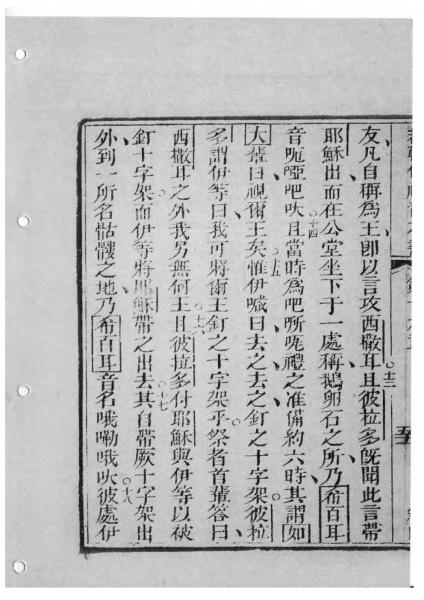 友凡自稱為王卽以言攻西撒耳○十三且彼拉多旣聞此言帶
耶穌出而在公堂坐下于一處稱鵝卵石之所乃希百耳
音呃啞吧吠○十四且當時為吧𠵽呃禮之准備約六時其謂如
大輩曰視爾王矣○十五惟伊喊曰去之去之釘之十字架彼拉
多謂伊等曰我可將爾王釘之十字架乎○祭者首輩答曰
西撒耳之外我另無何王○十六且彼拉多付耶穌與伊等以被
釘十字架而伊等將耶穌帶之出去○十七其自帶厥十字架出
外到一所名骷髏之地乃希百耳音名哦嘞哦吠○十八彼處伊